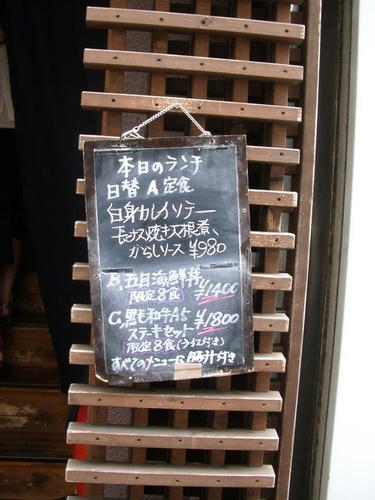 本日のランチ
日替 A 定食
白身カレイソテー
長ナス焼き大根煮、
からしソース ¥980
B, 五目海鮮丼
限定8食 ¥1400
C, 黒毛和牛A5 ¥1800
ステキセット
限定8食(ライス付き)
すべてのメニューに豚汁付き